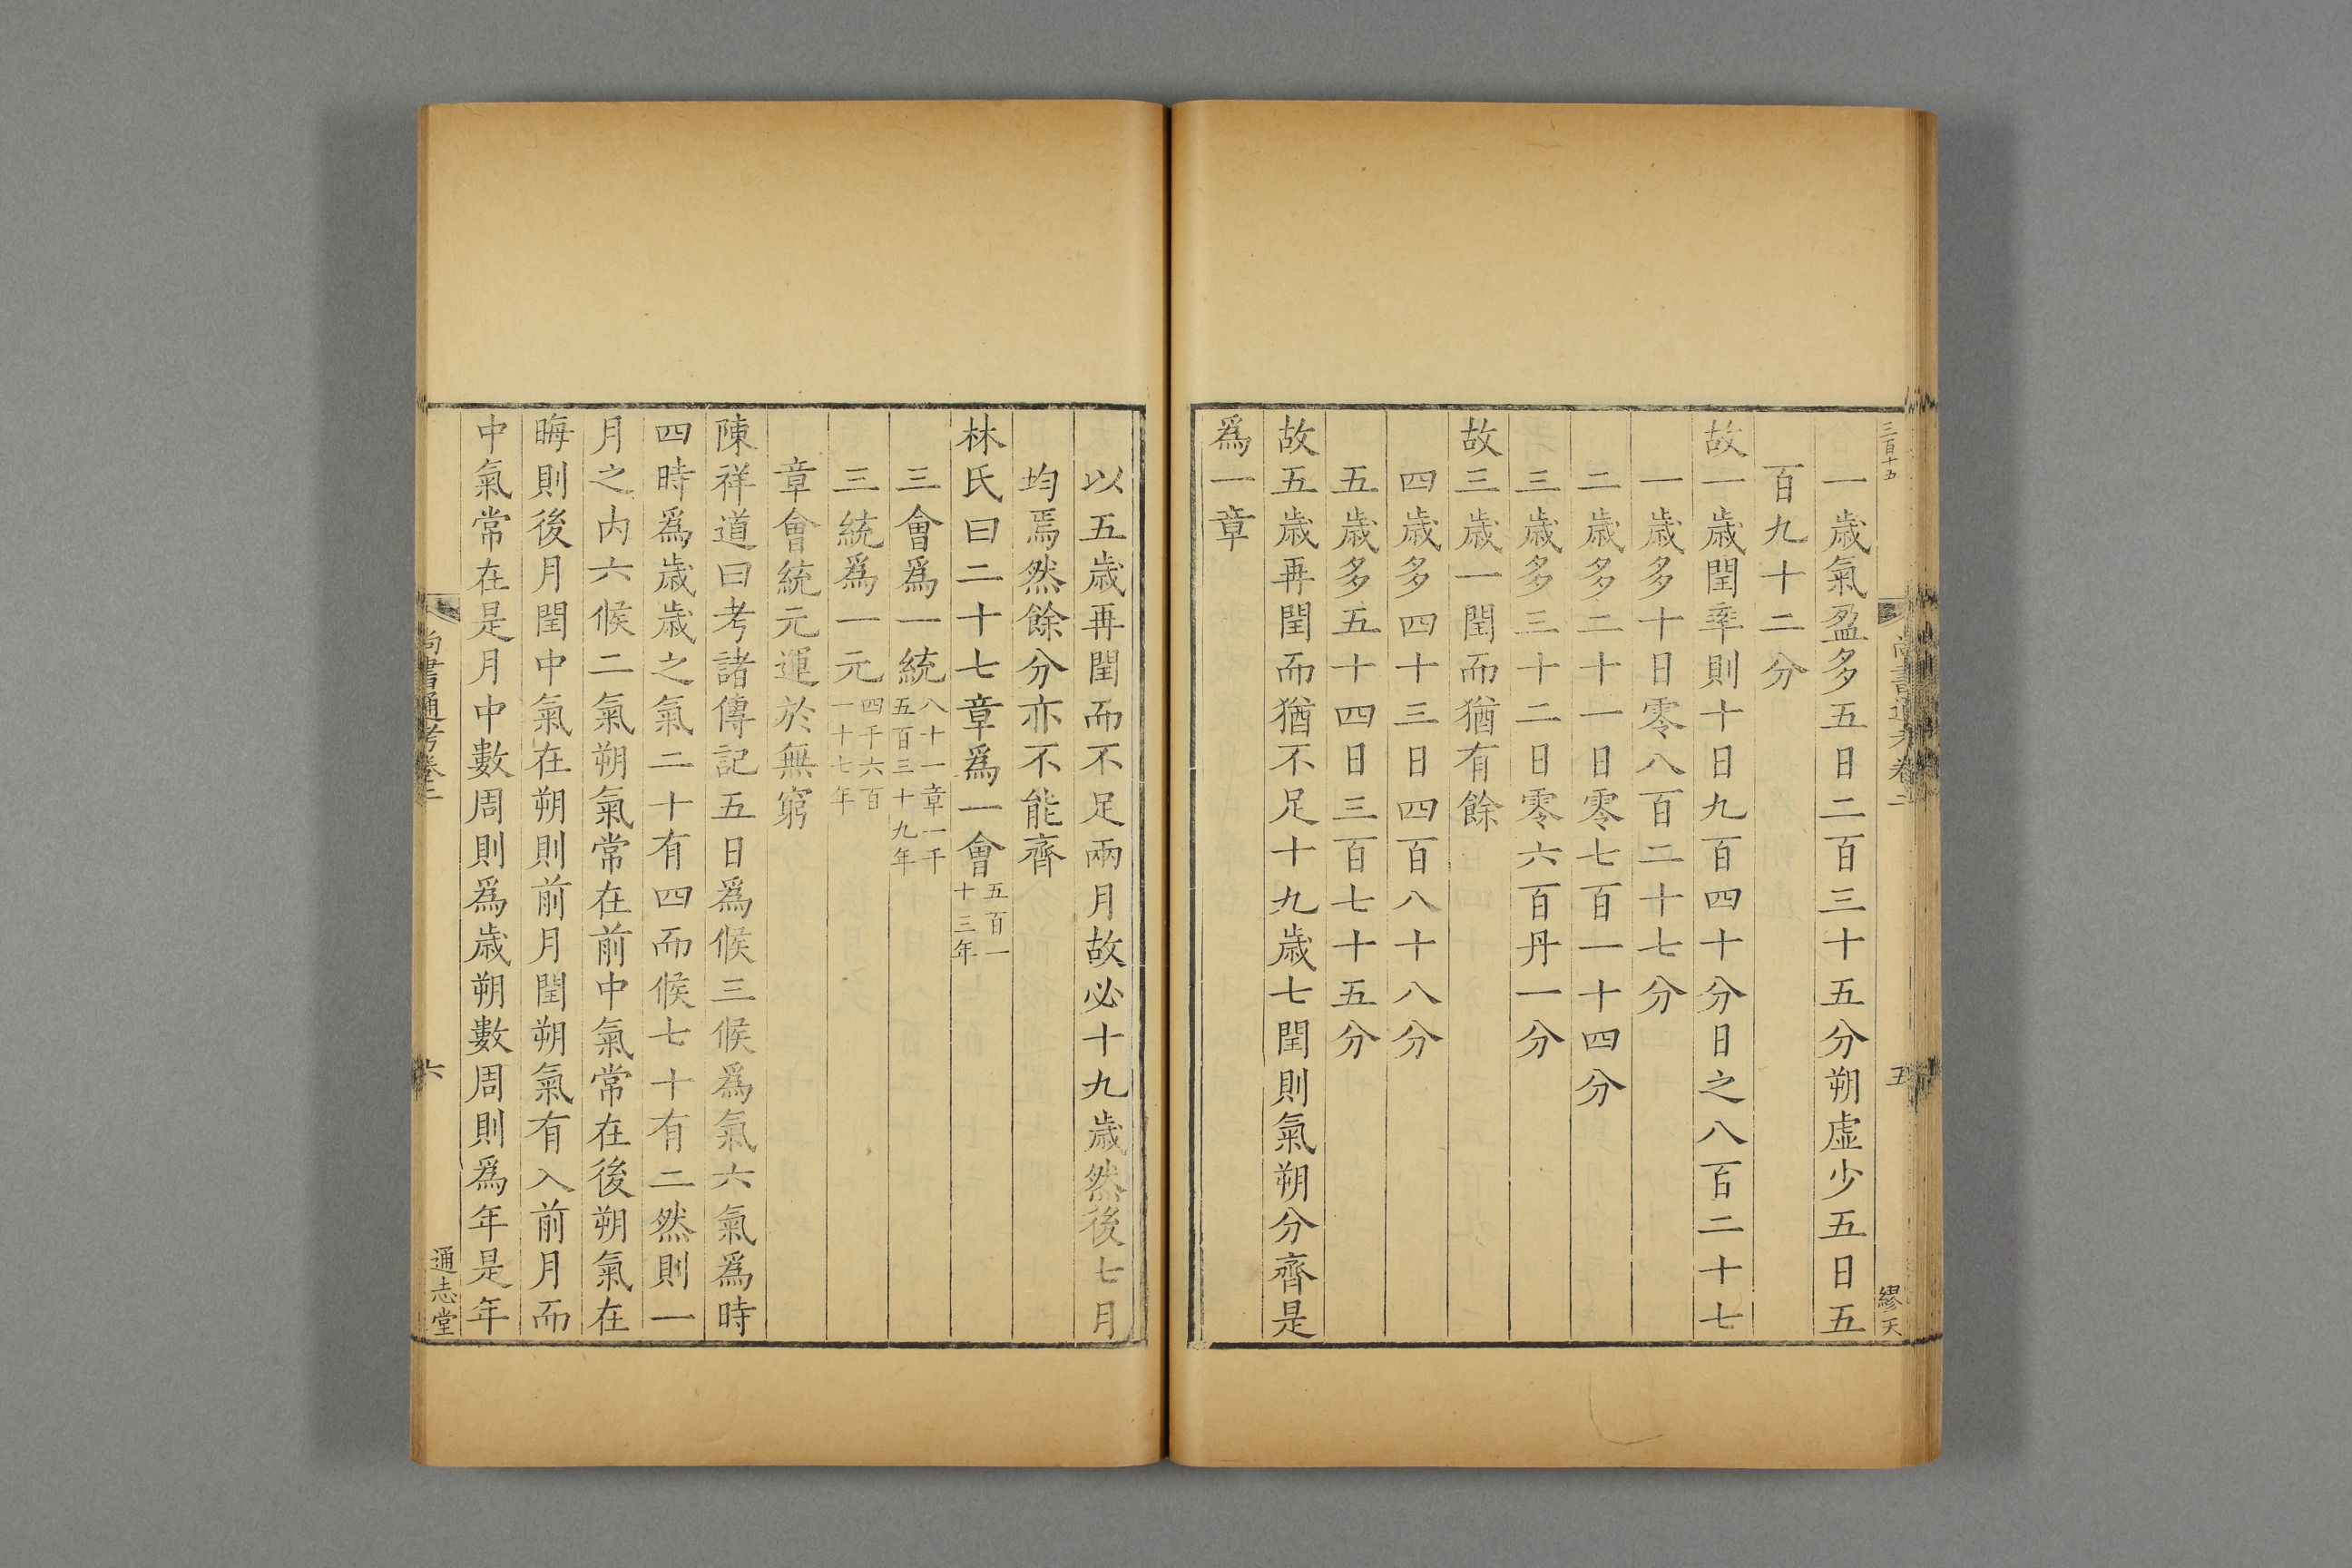 三百十五
尚書通考卷二
五
繆天
一歲氣盈多五日二百三十五分朔虛少五日五
百九十二分
故一歲閏率則十日九百四十分日之八百二十七
一歲多十日零八百二十七分
二歲多二十一日零七百一十四分
三歲多三十二日零六百丹一分
故三歲一閏而猶有餘
四歲多四十三日四百八十八分
五歲多五十四日三百七十五分
故五歲再閏而猶不足十九歲七閏則氣朔分齊是
爲一章
以五歲再閏而不足兩月故必十九歲然後七月
均焉然餘分亦不能齊
林氏曰二十七章爲一會五百一十三年
三會爲一統八十一章一千五百三十九年
三統爲一元四千六百一十七年
章會統元運於無窮
陳祥道曰考諸傳記五日爲候三候爲氣六氣爲時
四時爲歲歲之氣二十有四而候七十有二然則一
月之内六候二氣朔氣常在前中氣常在後朔氣在
晦則後月閏中氣在朔則前月閏朔氣有入前月而
中氣常在是月中數周則爲歲朔數周則爲年是年
尚書通考卷二
六
通志堂